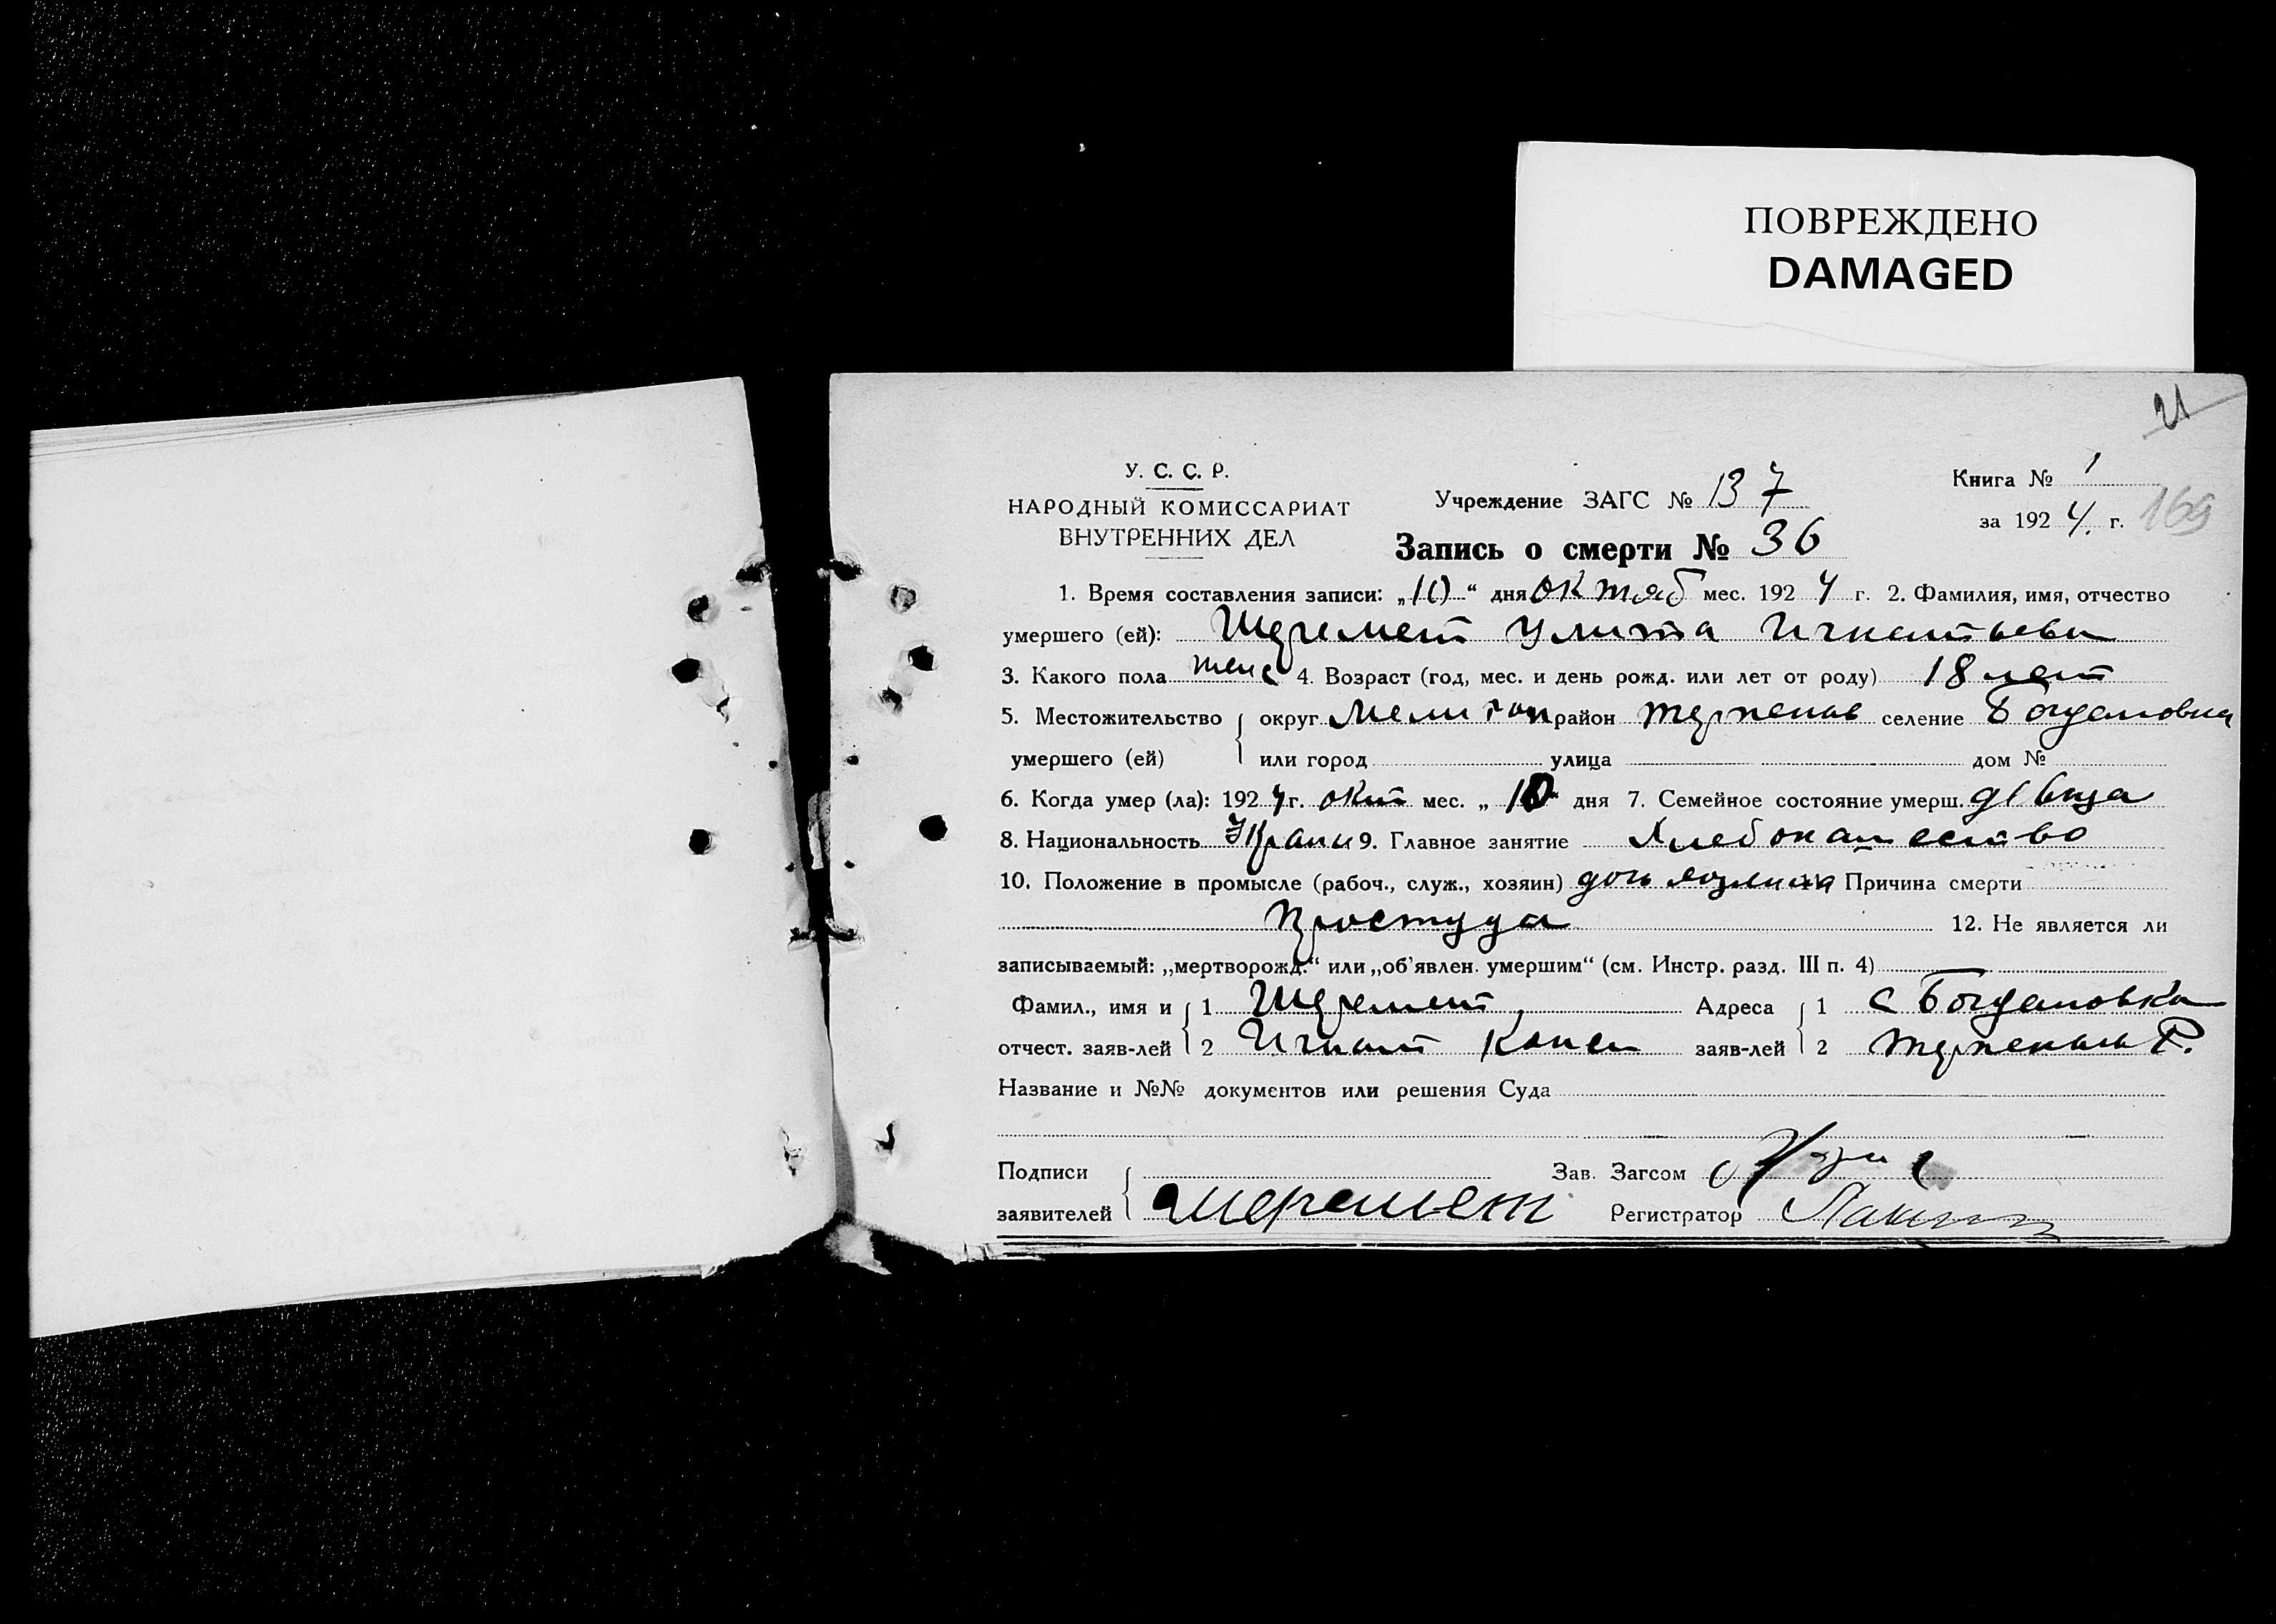 ПОВРЕЖДЕНО
DAMAGED
21
У. С. С. Р.
НАРОДНЫЙ КОМИССАРИАТ
ВНУТРЕННИХ ДЕЛ
Учреждение ЗАГС № 137
Запись о смерти № 36
Книга № 1
за 1924 г. 169
1. Время составления записи: „10“ дня октяб мес. 1924 г. 2. Фамилия, имя, отчество
умершего (ей): Шеремет Улита Игнатьевн
3. Какого пола женс 4. Возраст (год, мес. и день рожд. или лет от роду) 18 лет
5. Местожительство округ Мелитоп район Терпенов селение Богдановка
умершего (ей) или город улица дом №
6. Когда умер (ла): 1924 г. окт мес. „10“ дня 7. Семейное состояние умерш. девица
8. Национальность Украин 9. Главное занятие Хлебопашество
10. Положение в промысле (рабоч., служ., хозяин) дочь хозяина Причина смерти
Простуда 12. Не является ли
записываемый: „мертворожд.“ или „об'явлен. умершим“ (см. Инстр. разд. III п. 4)
Фамил., имя и 1 Шеремет Адреса 1 с Богдановка
отчест. заяв-лей 2 Игнат заяв-лей 2 Р.
Название и №№ документов или решения Суда
Подписи Зав. Загсом
заявителей Шеремет Регистратор